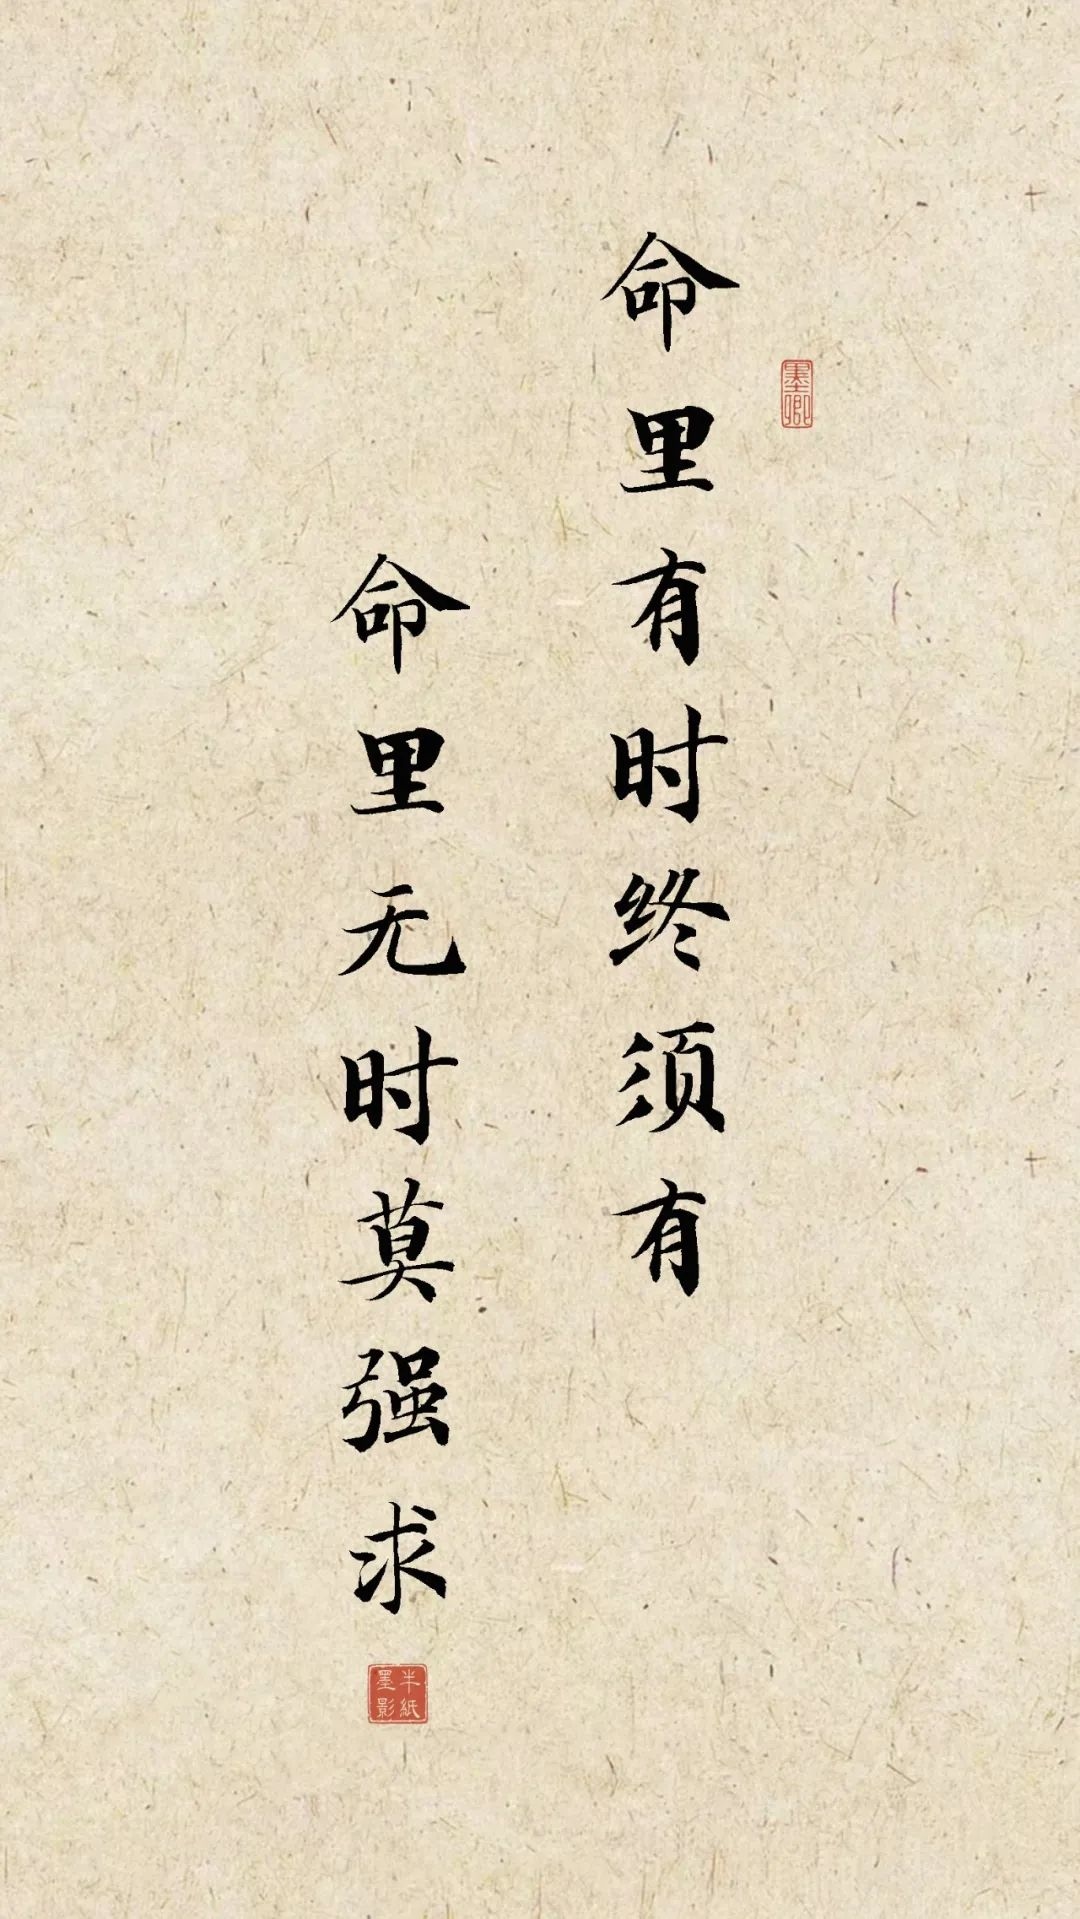 命里有时终须有
墨卿
命里无时莫强求
半纸
墨影